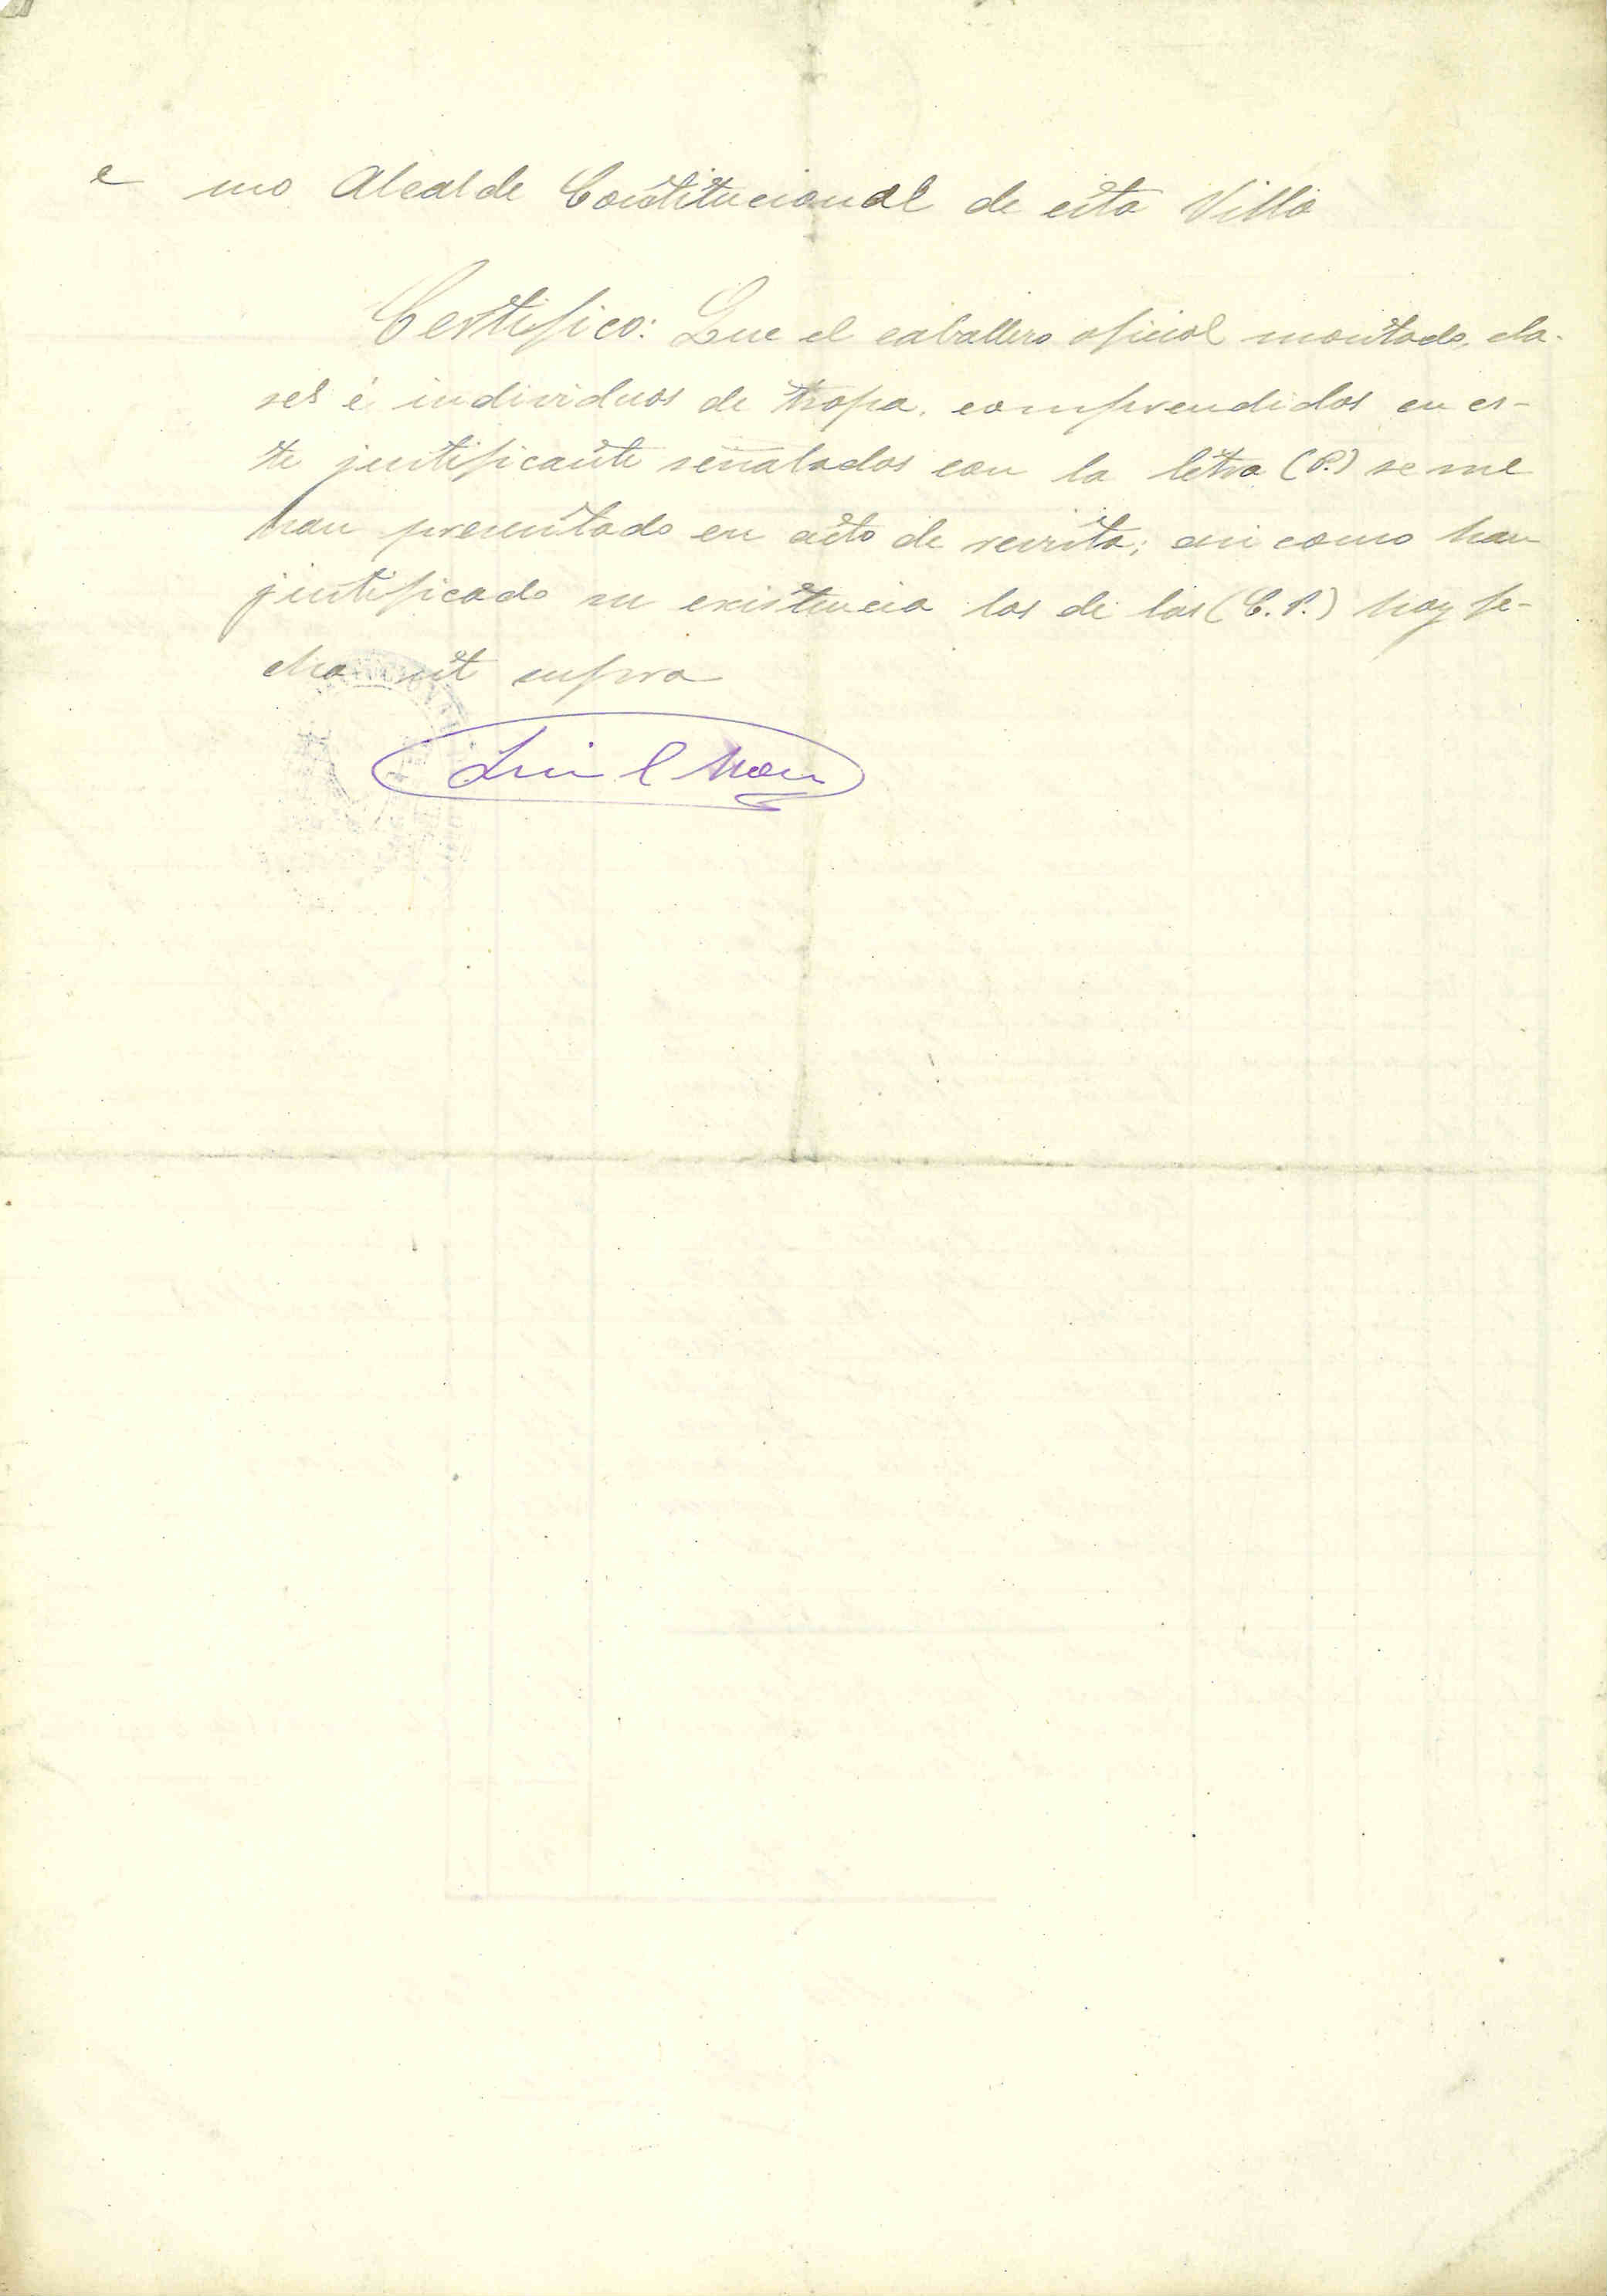 mo Alcalde Constitucional de esta Villa
Certifico: Que el caballero oficial montado, cla-
ses é individuos de tropa, comprendidos en es-
te justificante señalados con la letra (P.) se me
han presentado en acto de revista; asi como han
justificado su existencia los de las (C.P.) hoy fe-
cha ut supra